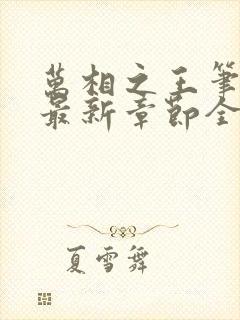 萬相之王筆
最新章節全
夏雪舞